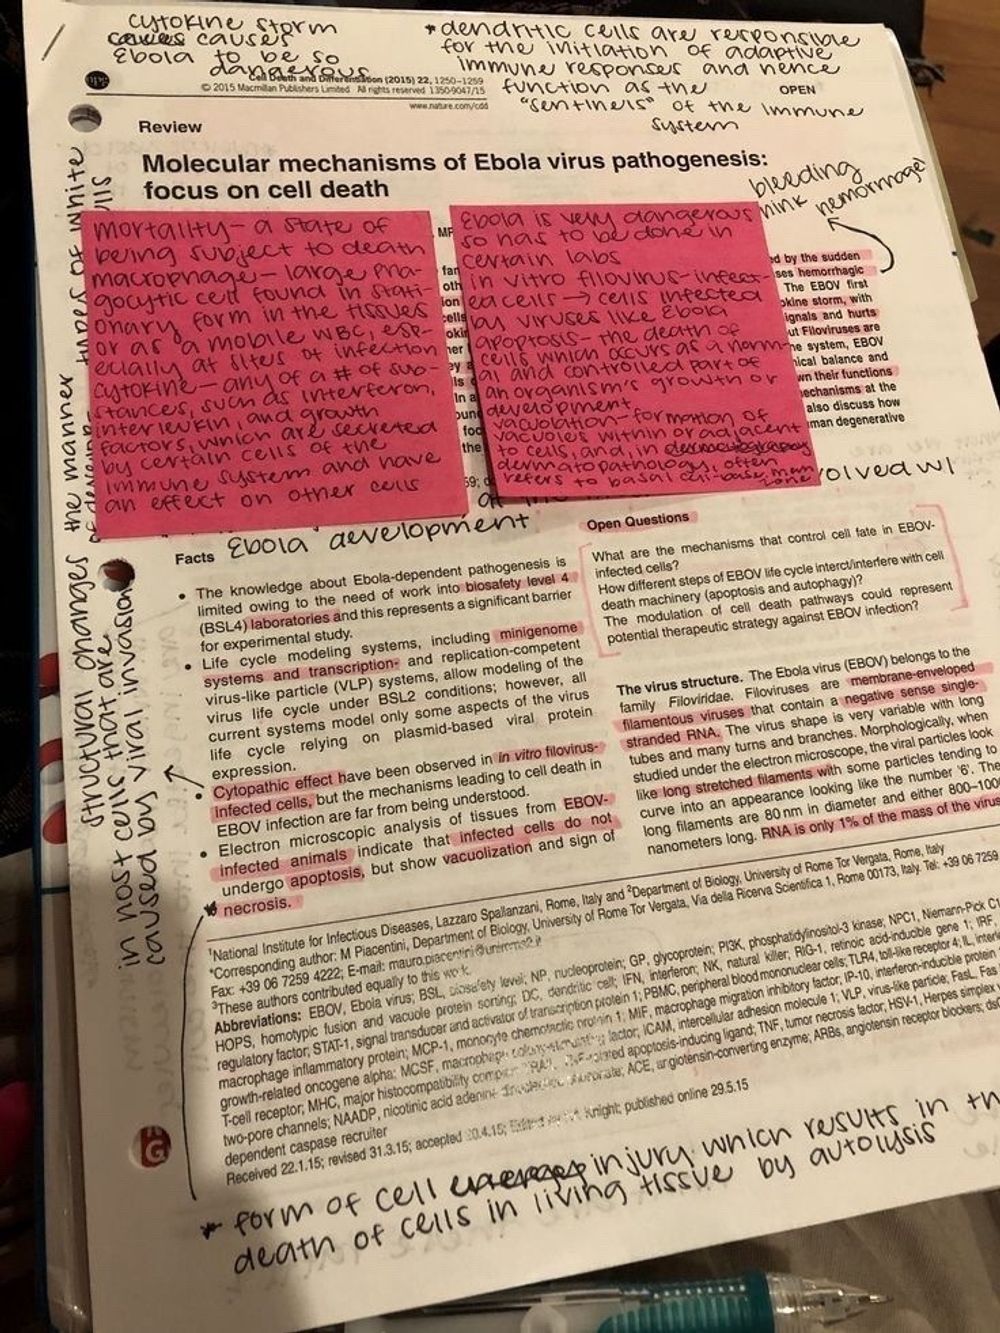 cytokine storm
causes causes
Ebola to be so
dangerous
* dendritic cells are responsible
for the initiation of adaptive
immune responses and hence
function as the
"sentinels" of the immune
system
Cell Death and Differentiation (2015) 22, 1250–1259
© 2015 Macmillan Publishers Limited All rights reserved 1350-9047/15
OPEN
www.nature.com/cdd
Review
Molecular mechanisms of Ebola virus pathogenesis:
focus on cell death
bleeding
hemorrhage
mortality – a state of
being subject to death
macrophage – large pha-
gocytic cell found in stati-
onary form in the tissues
or as a mobile WBC, esp-
ecially at sites of infection
cytokine – any of a # of sub-
stances, such as interferon,
interleukin, and growth
factors, which are secreted
by certain cells of the
immune system and have
an effect on other cells
Ebola is very dangerous
so has to be done in
certain labs
in vitro filovirus-infect-
ed cells → cells infected
by viruses like Ebola
apoptosis – the death of
cells which occurs as a norm-
al and controlled part of
an organism's growth or
development
vacuolation – formation of
vacuoles within or adjacent
to cells, and, in
dermatopathology, often
refers to basal
d by the sudden
ses hemorrhagic
The EBOV first
okine storm, with
ignals and hurts
ut Filoviruses are
ne system, EBOV
ical balance and
wn their functions
echanisms at the
also discuss how
man degenerative
olved w/
Ebola development
structural changes
in host cells that are
caused by viral invasion
the manner
types of white
Facts
• The knowledge about Ebola-dependent pathogenesis is
limited owing to the need of work into biosafety level 4
(BSL4) laboratories and this represents a significant barrier
for experimental study.
• Life cycle modeling systems, including minigenome
systems and transcription- and replication-competent
virus-like particle (VLP) systems, allow modeling of the
virus life cycle under BSL2 conditions; however, all
current systems model only some aspects of the virus
life cycle relying on plasmid-based viral protein
expression.
• Cytopathic effect have been observed in in vitro filovirus-
infected cells, but the mechanisms leading to cell death in
EBOV infection are far from being understood.
• Electron microscopic analysis of tissues from EBOV-
infected animals indicate that infected cells do not
undergo apoptosis, but show vacuolization and sign of
* necrosis.
Open Questions
What are the mechanisms that control cell fate in EBOV-
infected cells?
How different steps of EBOV life cycle interct/interfere with cell
death machinery (apoptosis and autophagy)?
The modulation of cell death pathways could represent
potential therapeutic strategy against EBOV infection?
The virus structure. The Ebola virus (EBOV) belongs to the
family Filoviridae. Filoviruses are membrane-enveloped
filamentous viruses that contain a negative sense single-
stranded RNA. The virus shape is very variable with long
tubes and many turns and branches. Morphologically, when
studied under the electron microscope, the viral particles look
like long stretched filaments with some particles tending to
curve into an appearance looking like the number '6'. The
long filaments are 80 nm in diameter and either 800–100
nanometers long. RNA is only 1% of the mass of the virus
¹National Institute for Infectious Diseases, Lazzaro Spallanzani, Rome, Italy and ²Department of Biology, University of Rome Tor Vergata, Rome, Italy
*Corresponding author: M Piacentini, Department of Biology, University of Rome Tor Vergata, Via della Ricerca Scientifica 1, Rome 00173, Italy. Tel: +39 06 7259
Fax: +39 06 7259 4222; E-mail: mauro.piacentini@uniroma2.it
³These authors contributed equally to this work.
Abbreviations: EBOV, Ebola virus; BSL, biosafety level; NP, nucleoprotein; GP, glycoprotein; PI3K, phosphatidylinositol-3 kinase; NPC1, Niemann-Pick C1
HOPS, homotypic fusion and vacuole protein sorting; DC, dendritic cell; IFN, interferon; NK, natural killer; RIG-1, retinoic acid-inducible gene 1; IRF,
regulatory factor; STAT-1, signal transducer and activator of transcription protein 1; PBMC, peripheral blood mononuclear cells; TLR4, toll-like receptor 4; IL,
macrophage inflammatory protein; MCP-1, monocyte chemotactic protein 1; MIF, macrophage migration inhibitory factor; IP-10, interferon-inducible protein
growth-related oncogene alpha; MCSF, macrophage colony-stimulating factor; ICAM, intercellular adhesion molecule 1; VLP, virus-like particle; FasL, Fas
T-cell receptor; MHC, major histocompatibility complex; TRAIL, TNF-related apoptosis-inducing ligand; TNF, tumor necrosis factor; HSV-1, Herpes simplex
two-pore channels; NAADP, nicotinic acid adenine dinucleotide phosphate; ACE, angiotensin-converting enzyme; ARBs, angiotensin receptor blockers;
dependent caspase recruiter
Received 22.1.15; revised 31.3.15; accepted 20.4.15; Edited by Knight; published online 29.5.15
* form of cell injury which results in th
death of cells in living tissue by autolysis